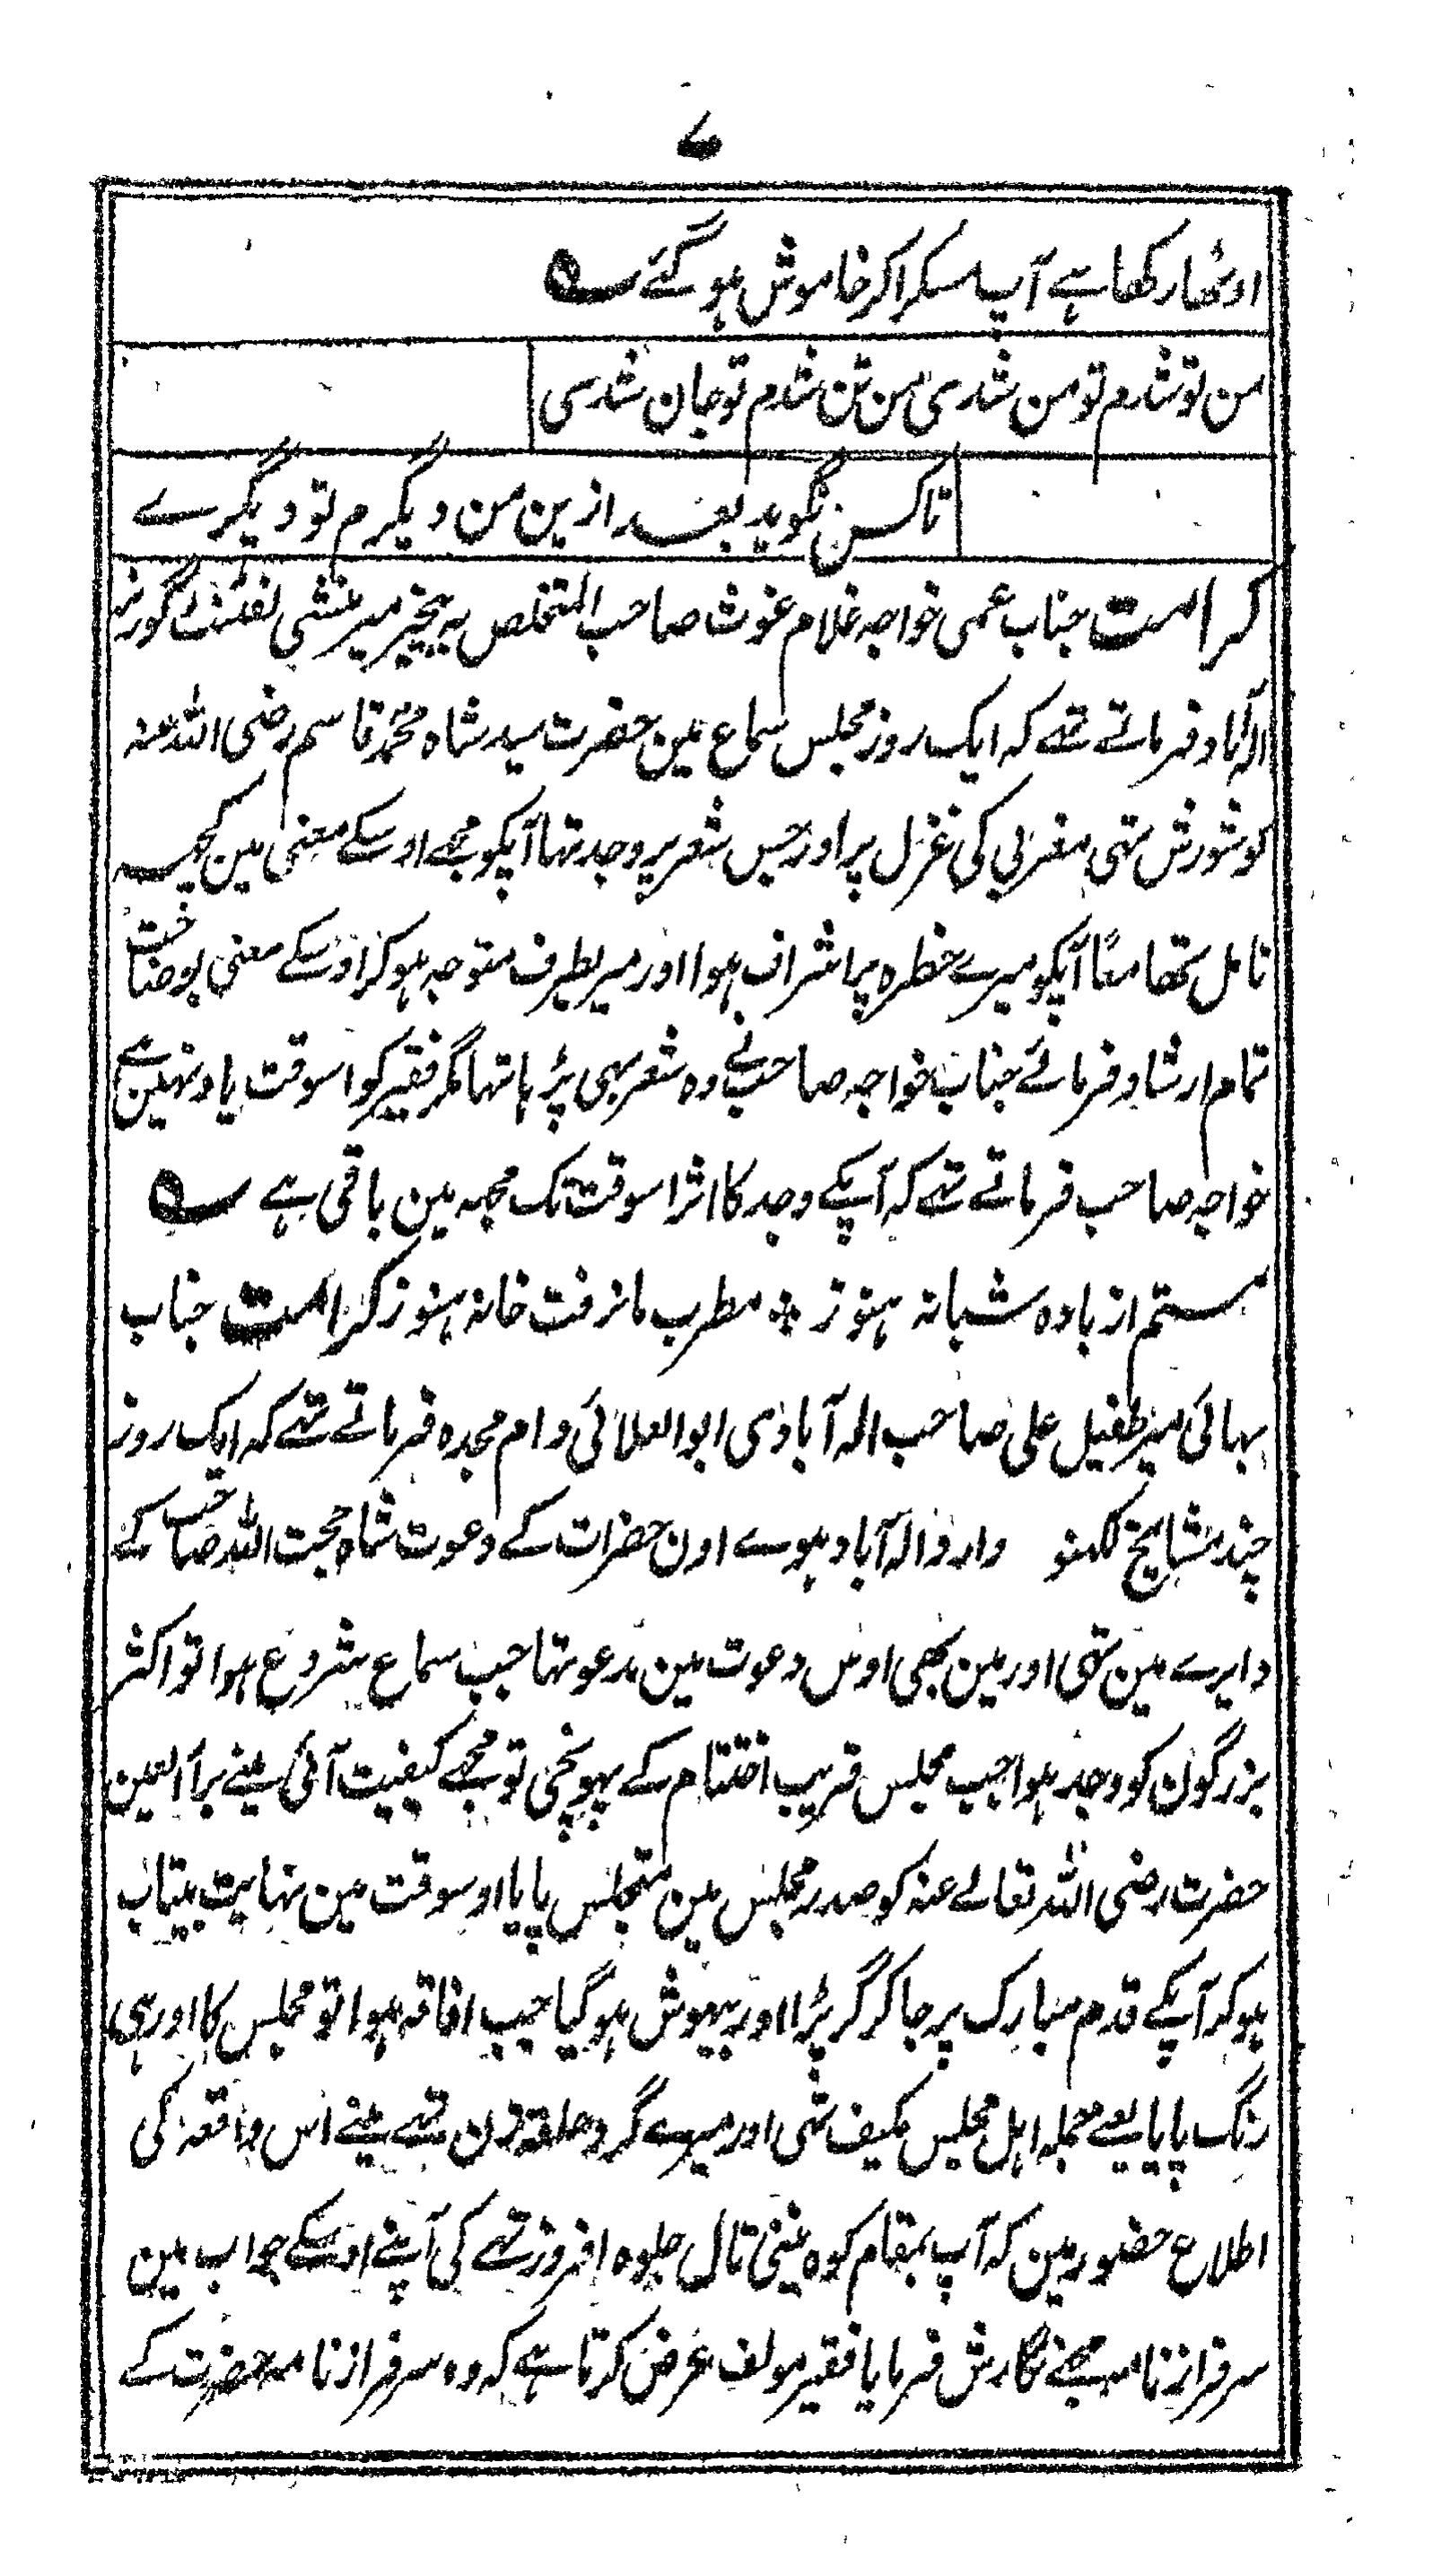 ۷
اوٹھا رکھا ہے آپ مسکرا کر خاموش ہو گئے ؎
من تو شدم تو من شدی من تن شدم تو جان شدی
تا کس نگوید بعد ازین من دیگرم تو دیگرے
کرامت جناب عمی خواجہ غلام غوث صاحب المتخلص بہ بیخبر میر منشی لفٹنٹ گورنر
الہ آباد فرماتے تھے کہ ایک روز مجلس سماع مین حضرت سید شاہ محمد قاسم رضی اللہ عنہ
کو شورش تہی مغربی کی غزل پر اور جس شعر پر وجد تہا آپکو مجھے اوسکے معنی مین کچہہ
تامل تھا معاً آپکو میرے خطرہ پر اشراف ہوا اور میریطرف متوجہ ہوکر اوسکے معنی بوضاحت
تمام ارشاد فرمائے جناب خواجہ صاحبنے وہ شعر بہی پڑہا تہا مگر فقیر کو اسوقت یاد نہین ہے
خواجہ صاحب فرماتے تہے کہ آپکے وجد کا اثر اسوقت تک مجہہ مین باقی ہے ؎
مستم از بادہ شبانہ ہنوز ؞ مطرب ما نرفت خانہ ہنوز کرامت جناب
بہائی میر طفیل علی صاحب الہ آبادی ابو العلائی دام مجدہ فرماتے تہے کہ ایک روز
چند مشایخ لکہنو وارد الہ آباد ہوے اون حضرات کے دعوت شاہ حجت اللہ صاحب کے
دایرے مین تہی اور مین بھی اوس دعوت مین مدعو تہا جب سماع شروع ہوا تو اکثر
بزرگون کو وجد ہوا جب مجلس قریب اختتام کے پہونچی تو مجھے کیفیت آئی مینے براٴ العین
حضرت رضی اللہ تعالے عنہ کو صدر مجلس مین متجلس پایا اوسوقت مین نہایت بیتاب
ہوکر آپکے قدم مبارک پر جاکر گر پڑا اور بیہوش ہوگیا جب افاقہ ہوا تو مجلس کا اور ہی
رنگ پایا یعے جملہ اہل مجلس مکیف تہی اور میرے گرد حلقہ زن تہے مینے اس واقعہ کی
اطلاع حضور مین کہ آپ بمقام کوہ نینی تال جلوہ افروز تہے کی آپنے اوسکے جواب مین
سرفراز نامہ مجھے نگارش فرمایا فقیر مولف عرض کرتا ہے کہ وہ سرفراز نامہ حضرت کے